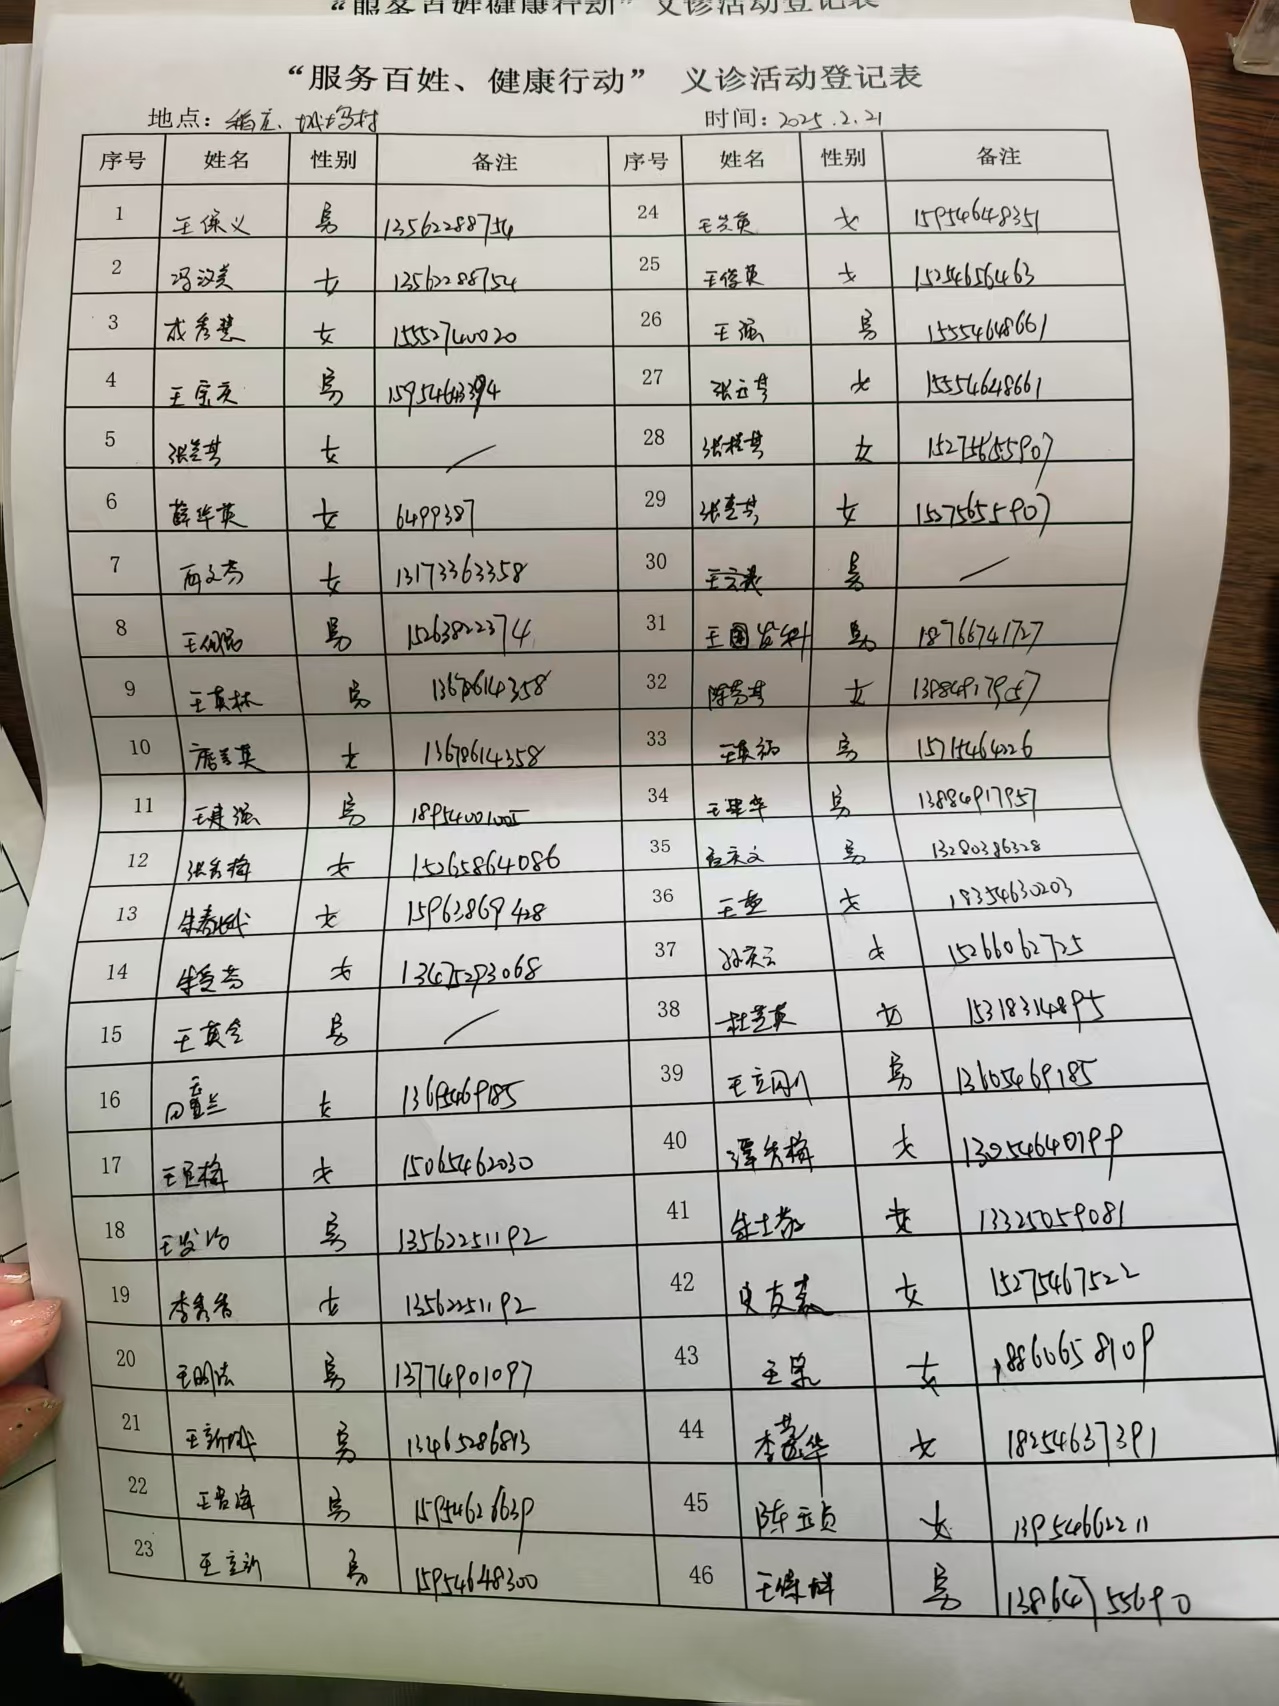 “服务百姓健康行动”义诊活动登记表
“服务百姓、健康行动” 义诊活动登记表
地点: 稻庄、城坞村 时间: 2025.2.21
序号 姓名 性别 备注 序号 姓名 性别 备注
1 王保义 男 13562288754 24 王兰英 女 15954648351
2 冯汉美 女 13562288754 25 王俊英 女 15254656463
3 成秀慧 女 15552740020 26 王强 男 15554648661
4 王宗亮 男 15954643394 27 张立芹 女 15554648661
5 张兰芹 女 / 28 张桂芹 女 15275655907
6 薛华英 女 6499387 29 张喜芹 女 15275655907
7 女 13173363358 30 王立 男 /
8 王 男 15263822374 31 王国 男 18766741727
9 王英林 男 13678614358 32 陈秀芹 女 13884917957
10 唐兰英 女 13678614358 33 王英 男 15715464226
11 王建强 男 18954001005 34 王 男 13884917957
12 张秀梅 女 15265864086 35 男 13280386328
13 朱春 女 15963869428 36 王 女 18354630203
14 朱爱芳 女 13475293068 37 孙庆云 女 15266062725
15 王英会 男 / 38 杜兰英 女 15318314895
16 兰 女 13605469185 39 王立刚 男 13605469185
17 王 梅 女 15065462030 40 谭秀梅 女 13054640199
18 王 男 13562251192 41 朱士 女 13325059081
19 李秀香 女 13562251192 42 史友 女 15275467522
20 王明法 男 13774901097 43 王 女 18860658109
21 王新城 男 13465286813 44 李 华 女 18254637391
22 王 海 男 15954626639 45 陈玉贞 女 13954662211
23 王立新 男 15954648300 46 王保祥 男 13864755690